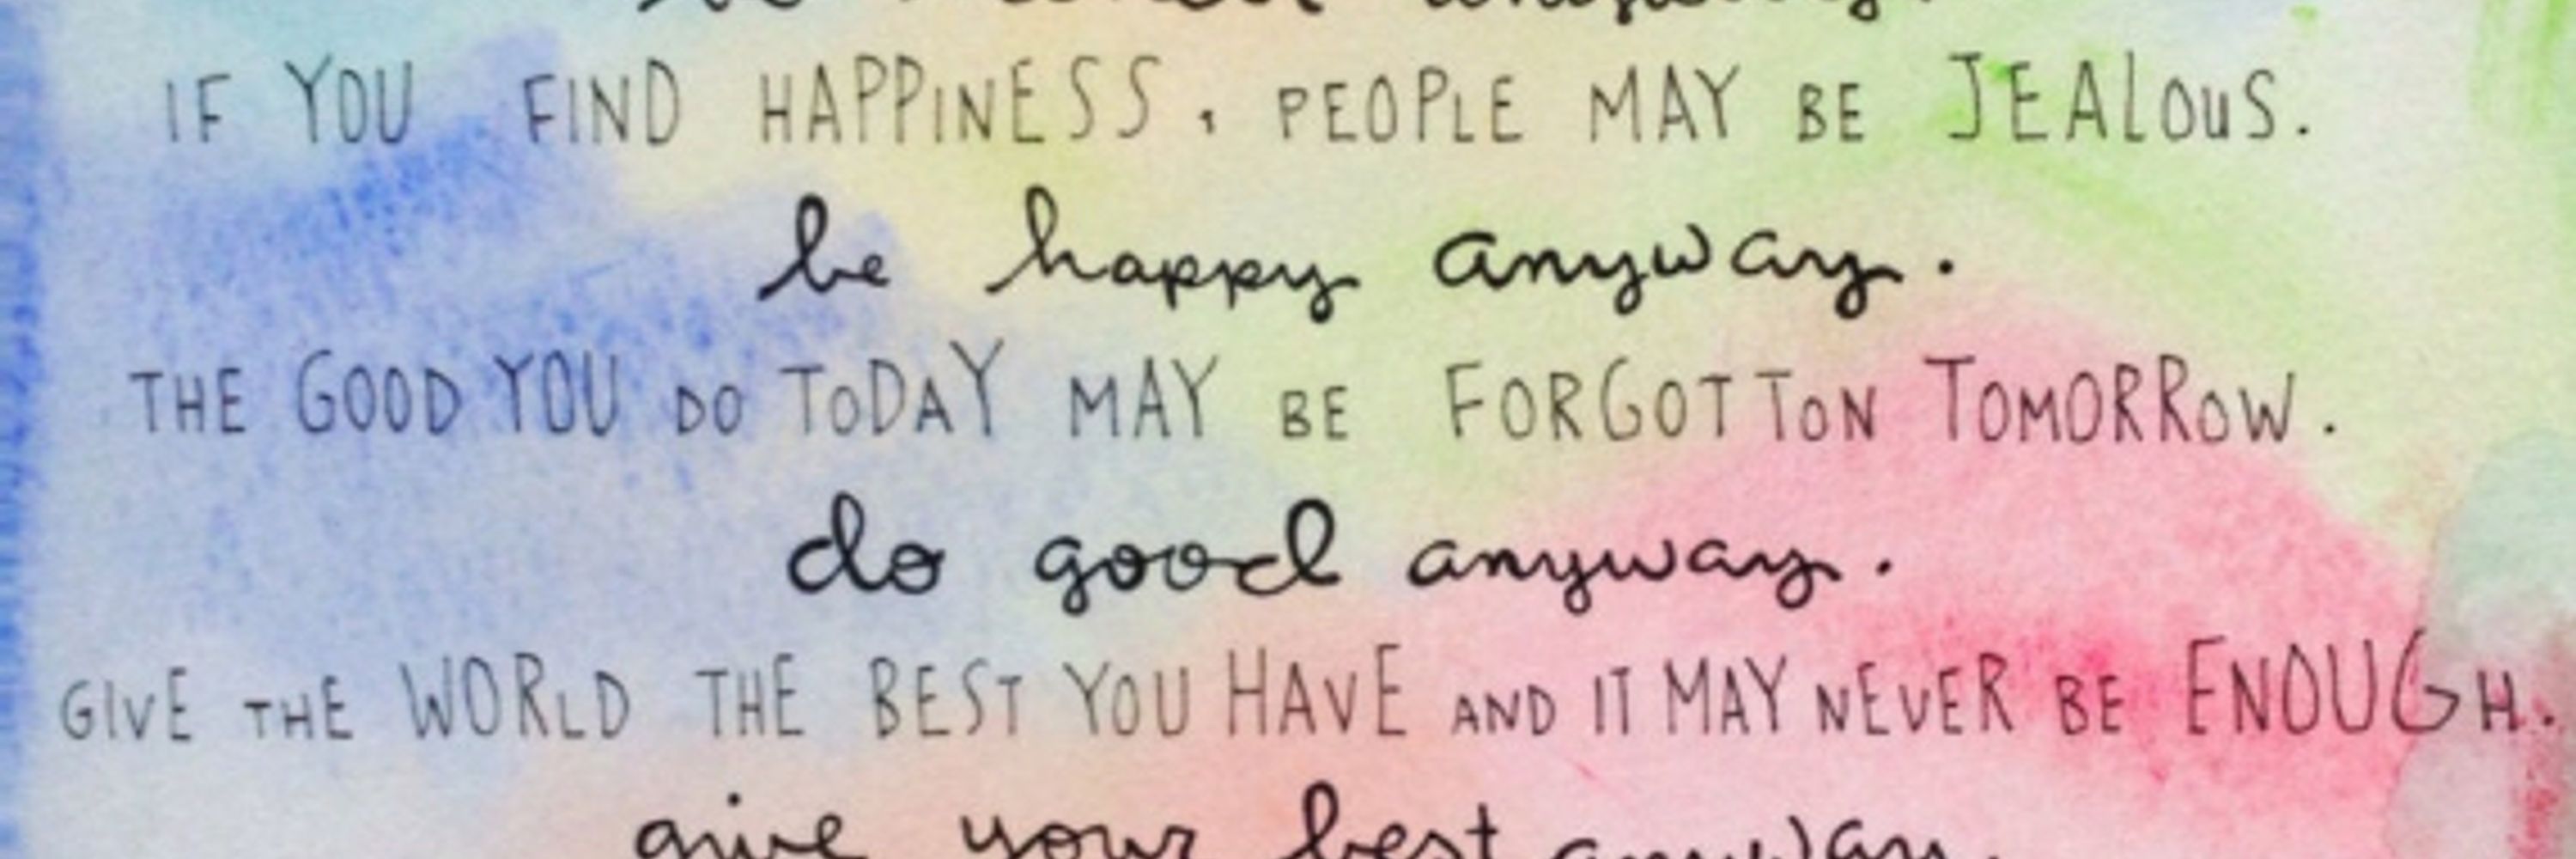 be honest anyway.
IF YOU FIND HAPPINESS, PEOPLE MAY BE JEALOUS.
be happy anyway.
THE GOOD YOU DO TODAY MAY BE FORGOTTON TOMORROW.
do good anyway.
GIVE THE WORLD THE BEST YOU HAVE AND IT MAY NEVER BE ENOUGH.
give your best anyway.